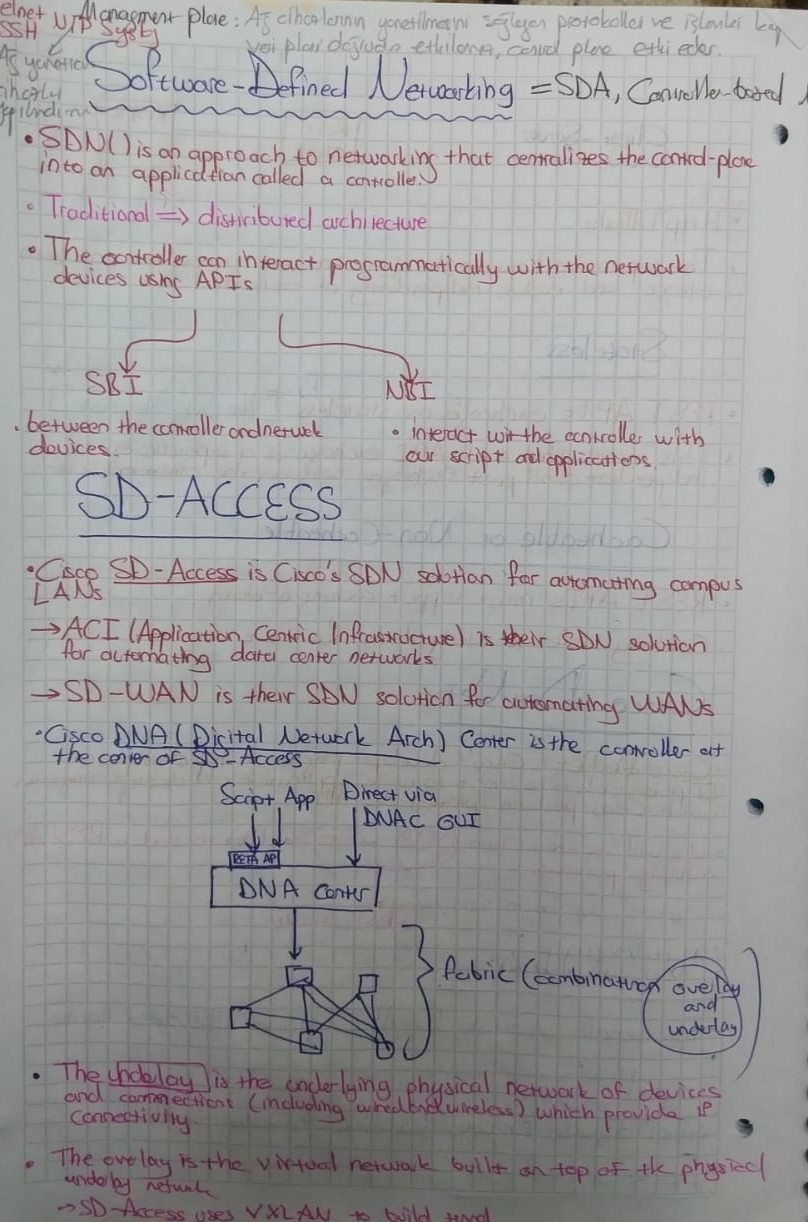 elnet
SSH
NTP
Syslog
Managment plane: Ağ cihazlarının yönetilmesini sağlayan protokoller ve işlevleri
veri planı doğrudan etkilemez, control plane etki eder.
Ağ yönetici
Software-Defined Networking = SDA, Controller-based
• SDN() is an approach to networking that centralizes the control-plane
into an application called a controller.
• Traditional => distiributed architecture
• The controller can interact programmatically with the network
devices using APIs
SBI
NBI
. between the controller and network
devices.
• interact wit the controller with
our script and applications.
SD-ACCESS
• Cisco SD-Access is Cisco's SDN solution for automating campus
LANs
→ ACI (Application, Centric Infrastructure) is their SDN solution
for automating data center networks
→ SD-WAN is their SDN solution for automating WANs
• Cisco DNA (Digital Network Arch) Center is the controller at
the center of SD-Access
Script, App
Direct via
DNAC GUI
REST API
DNA Center
fabric (combination overlay
and
underlay)
• The undelay is the underlying physical network of devices
and connections (including wired and wireless) which provide IP
connectivity.
• The overlay is the virtual network built on top of the physical
underlay network
→ SD-Access uses VXLAN to build tunnel